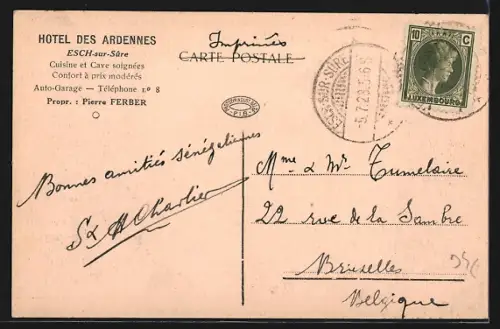 HOTEL DES ARDENNES
ESCH-sur-Sûre
Cuisine et Cave soignées
Confort à prix modérés
Auto-Garage — Téléphone nº 8
Propr. : Pierre FERBER
Imprimés
CARTE POSTALE
ESCH-SUR-SÛRE
-5.7.28.5-6S
10 C
LUXEMBOURG
Bonnes amitiés sénégaliennes
Charlier
Mme & Mr Tumelaire
22 rue de la Sambre
Bruxelles
Belgique